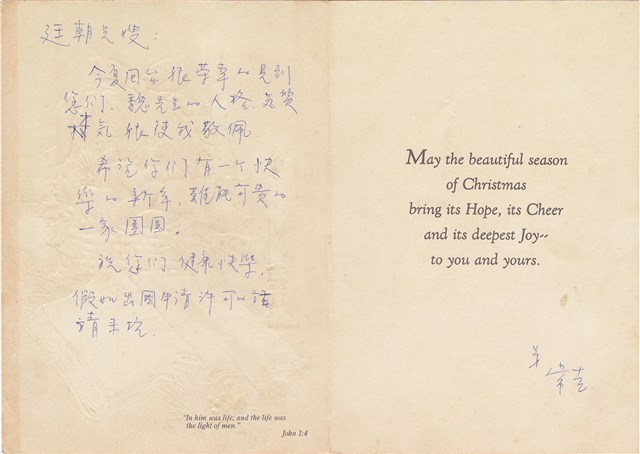 廷朝兄嫂:
今夏回台很荣幸的見到
您们、魏先生的人格、気質
气很使我敬佩
希望你们有一个快
樂的新年,難能可贵的
一家團圓。
祝您们健康快樂,
假如出國申请许可的話
請来玩
"In him was life; and the life was
the light of men."
John 1:4
May the beautiful season
of Christmas
bring its Hope, its Cheer
and its deepest Joy--
to you and yours.
弟